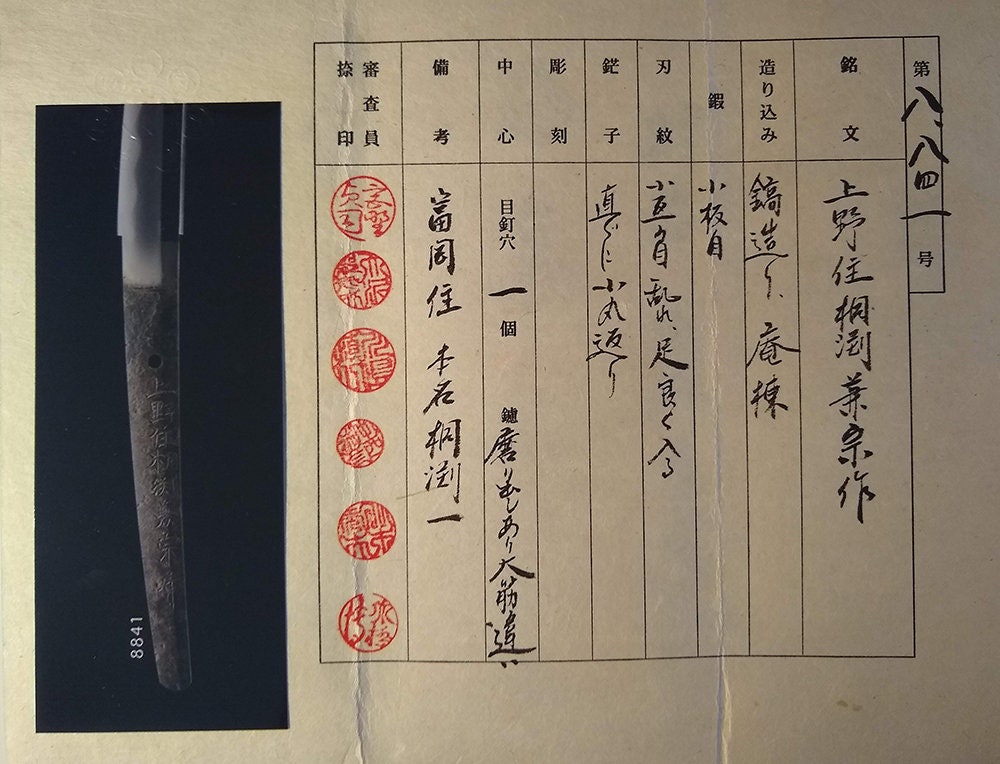 第八、八四一号
銘文
上野住桐渕兼宗作
造り込み
鎬造り、庵棟
鍜
小板目
刃紋
小互の目乱れ、足良く入る
鋩子
直ぐに小丸返り
彫刻
中心
目釘穴 一 個 鑢 磨り出しあり大筋違い
備考
富岡住 本名桐渕一
審査員
捺印
8841